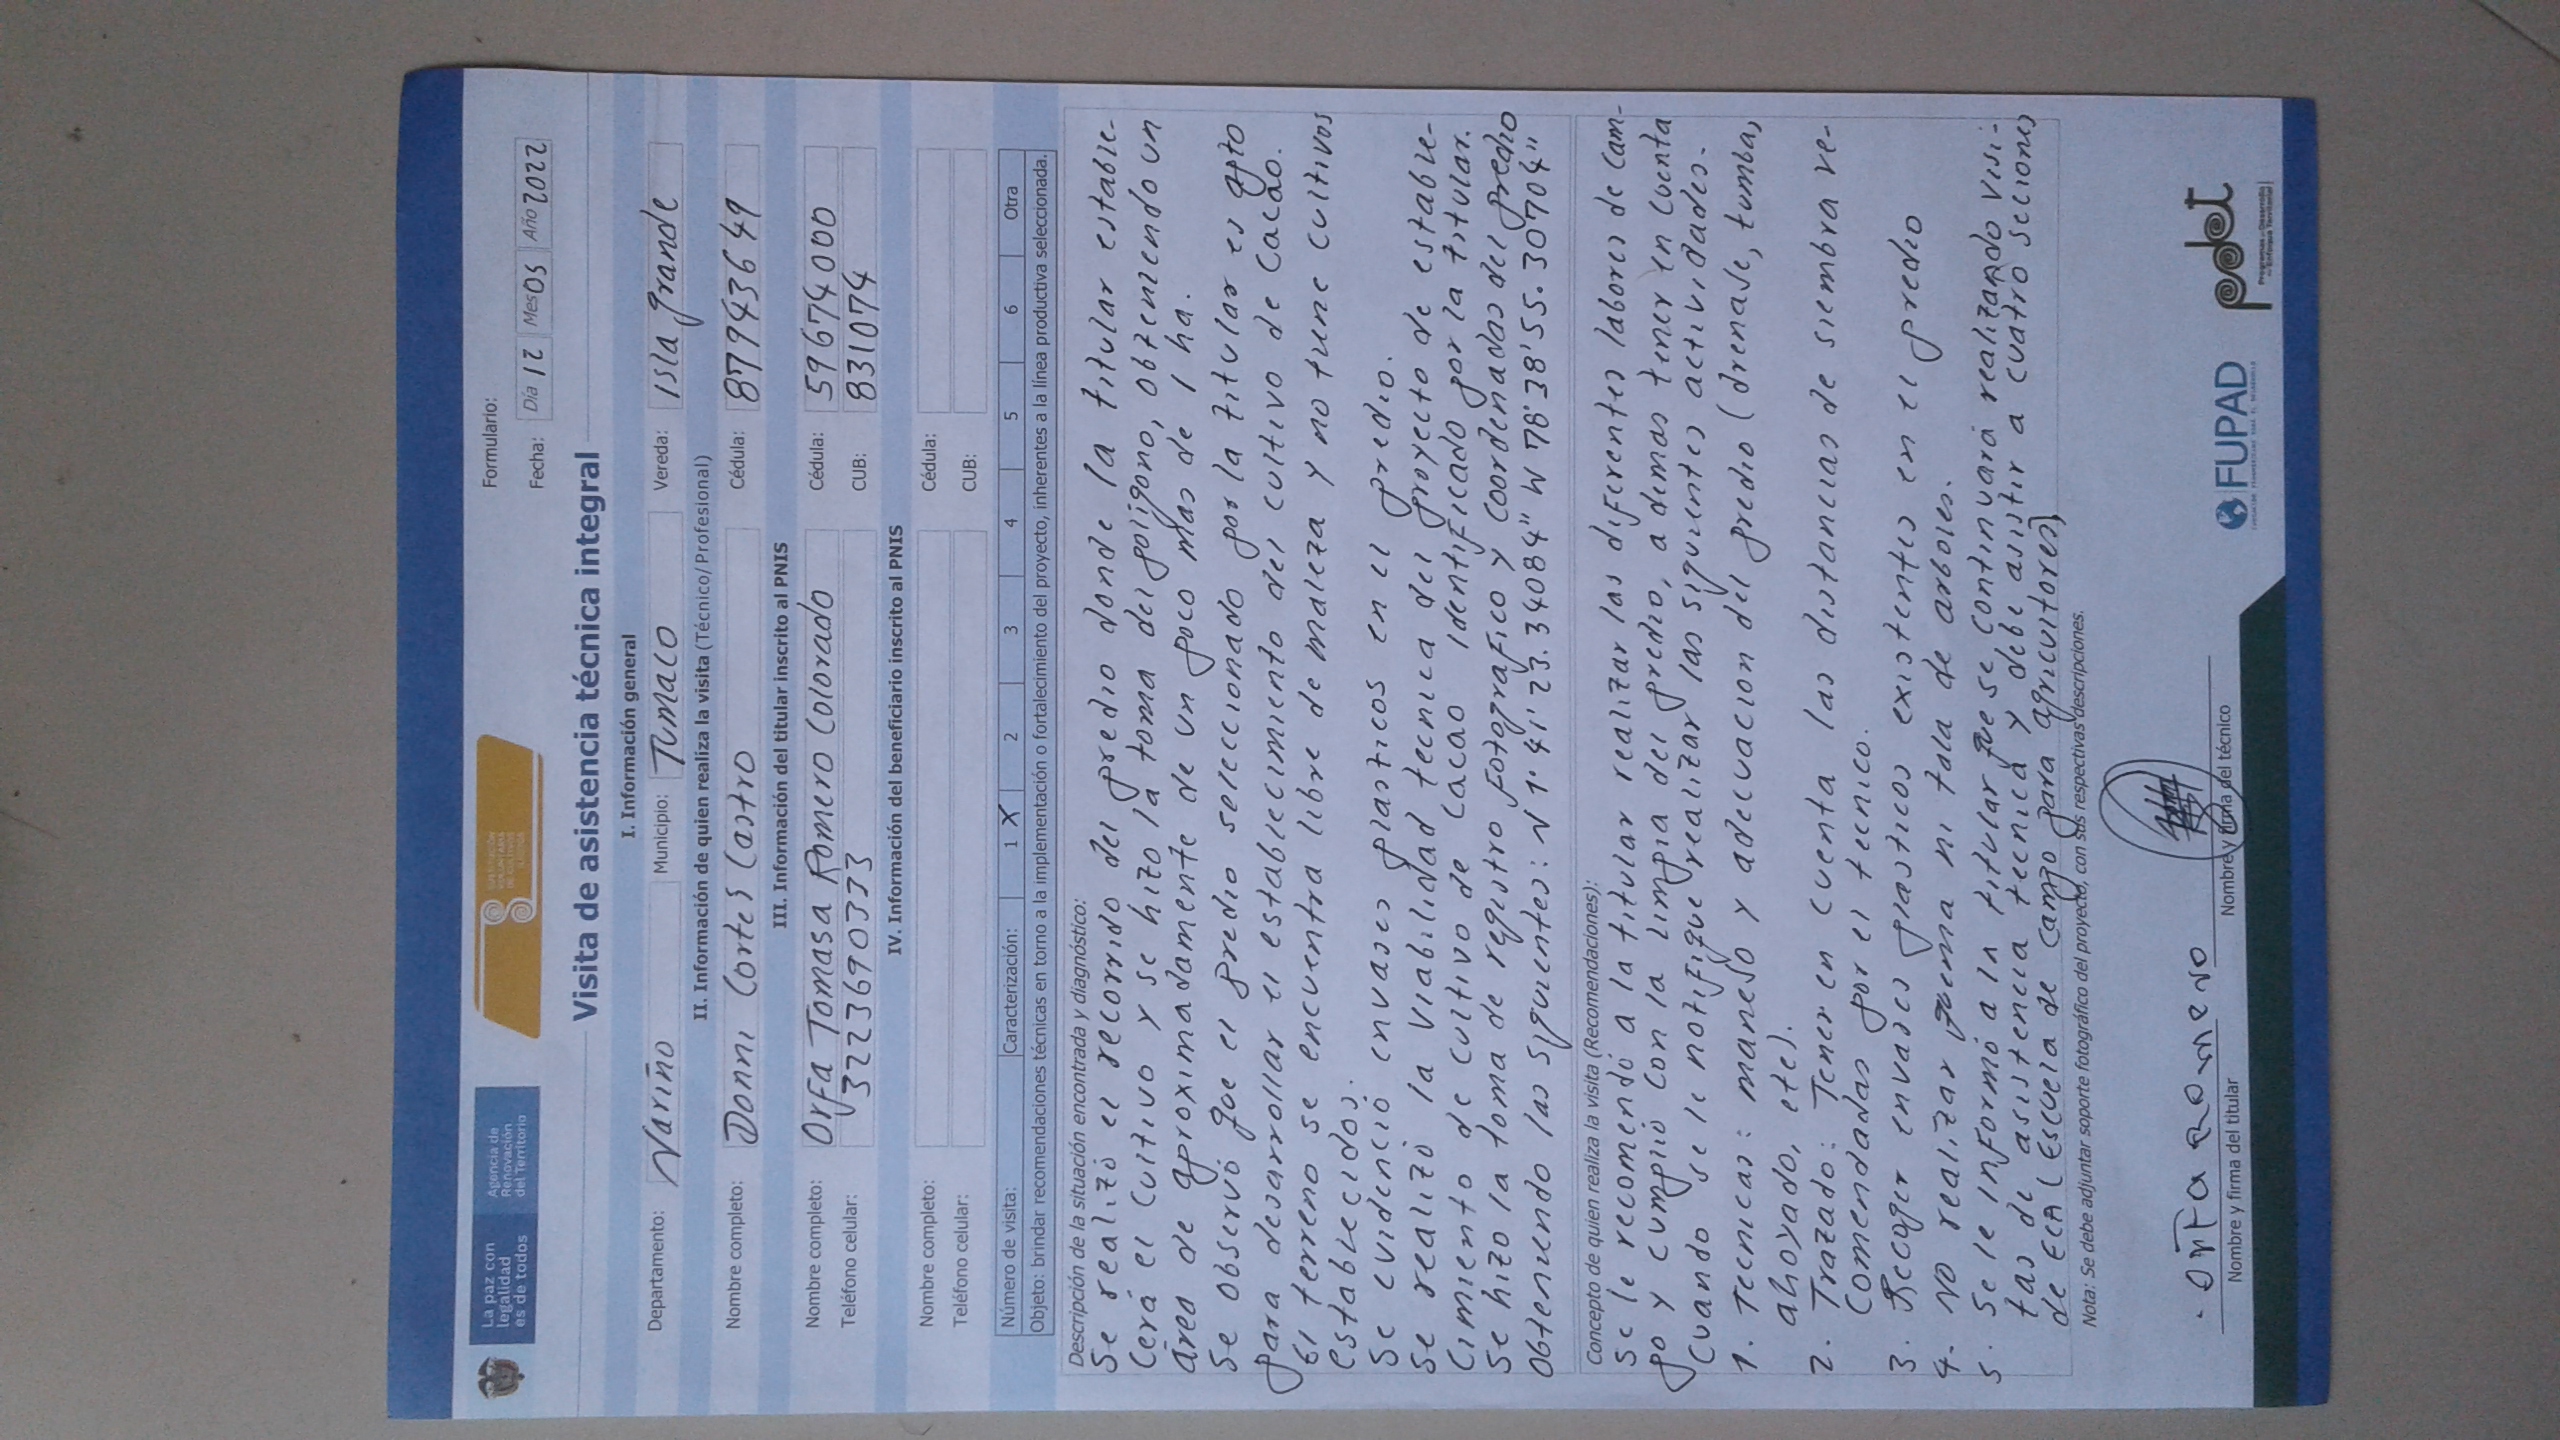 La paz con
legalidad
es de todos
Agencia de
Renovación
del Territorio
SUSTITUCIÓN
VOLUNTARIA
DE CULTIVOS
ILÍCITOS
Formulario:
Fecha: Día 12 Mes 05 Año 2022
Visita de asistencia técnica integral
I. Información general
Departamento: Nariño Municipio: Tumaco Vereda: Isla grande
II. Información de quien realiza la visita (Técnico/Profesional)
Nombre completo: Donni Cortes Castro Cédula: 87943649
III. Información del titular inscrito al PNIS
Nombre completo: Orfa Tomasa Romero Colorado Cédula: 59674000
Teléfono celular: 3223690333 CUB: 831074
IV. Información del beneficiario inscrito al PNIS
Nombre completo: Cédula:
Teléfono celular: CUB:
Número de visita: Caracterización: 1 X 2 3 4 5 6 Otra
Objeto: brindar recomendaciones técnicas en torno a la implementación o fortalecimiento del proyecto, inherentes a la línea productiva seleccionada.
Descripción de la situación encontrada y diagnóstico:
Se realizó el recorrido del predio donde la titular estable-
cerá el cultivo y se hizo la toma del poligono, obteniendo un
área de aproximadamente de un poco mas de 1 ha.
Se observó que el predio seleccionado por la titular es apto
para desarrollar el establecimiento del cultivo de cacao.
El terreno se encuentra libre de maleza y no tiene cultivos
establecidos.
Se evidenció envases plasticos en el predio.
Se realizó la viabilidad tecnica del proyecto de estable-
cimiento de cultivo de cacao identificado por la titular.
Se hizo la toma de registro fotografico y coordenadas del predio
obteniendo las siguientes: N 1°41'23.34084" W 78°38'55.30704"
Concepto de quien realiza la visita (Recomendaciones):
Se le recomendó a la titular realizar las diferentes labores de cam-
po y cumplió con la limpia del predio, a demas tener en cuenta
cuando se le notifique realizar las siguientes actividades.
1. Tecnicas: maneso y adecuacion del predio (drenase, tumba,
ahoyado, etc).
2. Trazado: Tener en cuenta las distancias de siembra re-
comendadas por el tecnico.
3. Recoger envases plasticos existentes en el predio
4. No realizar quema ni tala de arboles.
5. Se le informó a la titular que se continuará realizando visi-
tas de asistencia tecnica y debe asistir a cuatro secciones
de ECA (Escuela de Campo para agricultores)
Nota: Se debe adjuntar soporte fotográfico del proyecto, con sus respectivas descripciones.
orfa Romero
Nombre y firma del titular
Nombre y firma del técnico
FUPAD
pdet
Programas de Desarrollo
con Enfoque Territorial